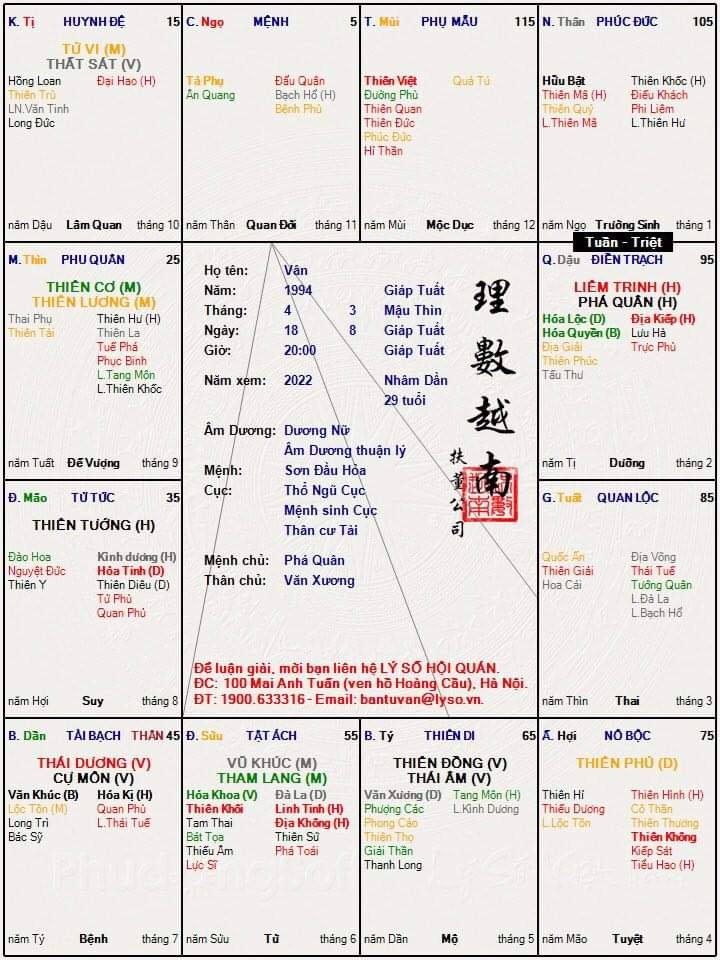 K. Tị HUYNH ĐỆ 15
TỬ VI (M)
THẤT SÁT (V)
Hồng Loan Đại Hao (H)
Thiên Trù
LN.Văn Tinh
Long Đức
năm Dậu Lâm Quan tháng 10
C. Ngọ MỆNH 5
Tả Phụ Đẩu Quân
Ân Quang Bạch Hổ (H)
Bệnh Phù
năm Thân Quan Đới tháng 11
T. Mùi PHỤ MẪU 115
Thiên Việt Quả Tú
Đường Phù
Thiên Quan
Thiên Đức
Phúc Đức
Hỉ Thần
năm Mùi Mộc Dục tháng 12
N. Thân PHÚC ĐỨC 105
Hữu Bật Thiên Khốc (H)
Thiên Mã (H) Điếu Khách
Thiên Quý Phi Liêm
L.Thiên Mã L.Thiên Hư
năm Ngọ Trường Sinh tháng 1
Tuần - Triệt
M. Thìn PHU QUÂN 25
THIÊN CƠ (M)
THIÊN LƯƠNG (M)
Thai Phụ Thiên Hư (H)
Thiên Tài Thiên La
Tuế Phá
Phục Binh
L.Tang Môn
L.Thiên Khốc
năm Tuất Đế Vượng tháng 9
Họ tên: Vân
Năm: 1994 Giáp Tuất
Tháng: 4 3 Mậu Thìn
Ngày: 18 8 Giáp Tuất
Giờ: 20:00 Giáp Tuất
Năm xem: 2022 Nhâm Dần
29 tuổi
Âm Dương: Dương Nữ
Âm Dương thuận lý
Mệnh: Sơn Đầu Hỏa
Cục: Thổ Ngũ Cục
Mệnh sinh Cục
Thân cư Tài
Mệnh chủ: Phá Quân
Thân chủ: Văn Xương
理數越南
扶董公司
Để luận giải, mời bạn liên hệ LÝ SỐ HỘI QUÁN.
ĐC: 100 Mai Anh Tuấn (ven hồ Hoàng Cầu), Hà Nội.
ĐT: 1900.633316 - Email: bantuvan@lyso.vn.
Q. Dậu ĐIỀN TRẠCH 95
LIÊM TRINH (H)
PHÁ QUÂN (H)
Hóa Lộc (D) Địa Kiếp (H)
Hóa Quyền (B) Lưu Hà
Địa Giải Trực Phù
Thiên Phúc
Tấu Thư
năm Tị Dưỡng tháng 2
Đ. Mão TỬ TỨC 35
THIÊN TƯỚNG (H)
Đào Hoa Kình dương (H)
Nguyệt Đức Hỏa Tinh (D)
Thiên Y Thiên Diêu (D)
Tử Phù
Quan Phủ
năm Hợi Suy tháng 8
G. Tuất QUAN LỘC 85
Quốc Ấn Địa Võng
Thiên Giải Thái Tuế
Hoa Cái Tướng Quân
L.Đà La
L.Bạch Hổ
năm Thìn Thai tháng 3
B. Dần TÀI BẠCH THÂN 45
THÁI DƯƠNG (V)
CỰ MÔN (V)
Văn Khúc (B) Hóa Kị (H)
Lộc Tồn (M) Quan Phù
Long Trì L.Thái Tuế
Bác Sỹ
năm Tý Bệnh tháng 7
Đ. Sửu TẬT ÁCH 55
VŨ KHÚC (M)
THAM LANG (M)
Hóa Khoa (V) Đà La (D)
Thiên Khôi Linh Tinh (H)
Tam Thai Địa Không (H)
Bát Tọa Thiên Sứ
Thiếu Âm Phá Toái
Lực Sĩ
năm Sửu Tử tháng 6
B. Tý THIÊN DI 65
THIÊN ĐỒNG (V)
THÁI ÂM (V)
Văn Xương (D) Tang Môn (H)
Phượng Các L.Kình Dương
Phong Cáo
Thiên Thọ
Giải Thần
Thanh Long
năm Dần Mộ tháng 5
Ấ. Hợi NÔ BỘC 75
THIÊN PHỦ (D)
Thiên Hỉ Thiên Hình (H)
Thiếu Dương Cô Thần
L.Lộc Tồn Thiên Thương
Thiên Không
Kiếp Sát
Tiểu Hao (H)
năm Mão Tuyệt tháng 4